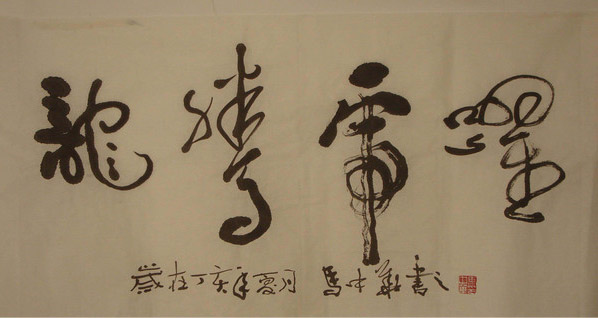 龍騰虎躍
歲在丁亥年夏月 馬中義書